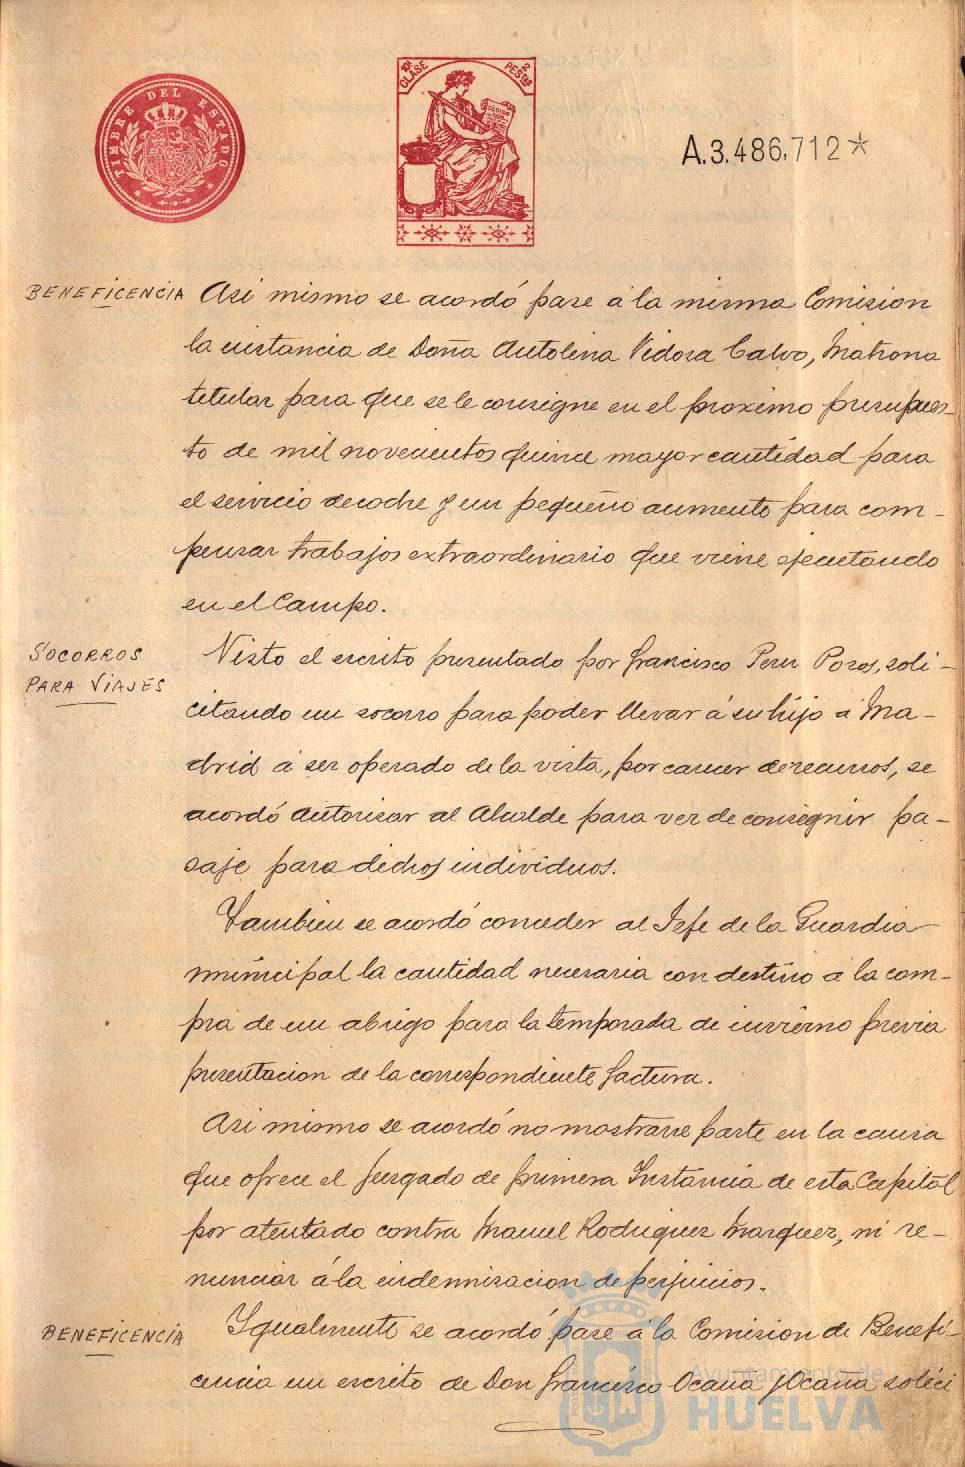 TIMBRE DEL ESTADO
10ª CLASE 2 PESTAS
CODIGO
A.3.486.712*
BENEFICENCIA
Asi mismo se acordó pase á la misma Comision
la instancia de Doña Antolina Vidosa Calvo, Matrona
titular para que se le consigne en el proximo presupues-
to de mil novecientos quince mayor cantidad para
el servicio de coche y un pequeño aumento para com-
pensar trabajos extraordinario que viene ejecutando
en el Campo.
SOCORROS
PARA VIAJES
Visto el escrito presentado por Francisco Peru Pozos, soli-
citando un socorro para poder llevar á su hijo á Ma-
drid á ser operado de la vista, por carecer de recursos, se
acordó autorizar al Alcalde para ver de conseguir pa-
saje para dichos individuos.
Tambien se acordó conceder al Jefe de la Guardia
municipal la cantidad necesaria con destino á la com-
pra de un abrigo para la temporada de invierno previa
presentacion de la correspondiente factura.
Asi mismo se acordó no mostrarse parte en la causa
que ofrece el juzgado de primera Instancia de esta Capital
por atentado contra Manuel Rodriguez Marquez, ni re-
nunciar á la indemnizacion de perjuicios.
BENEFICENCIA
Igualmente se acordó pase á la Comision de Benefi-
cencia un escrito de Don Francisco Ocaña y Ocaña solici
Ayuntamiento de
HUELVA